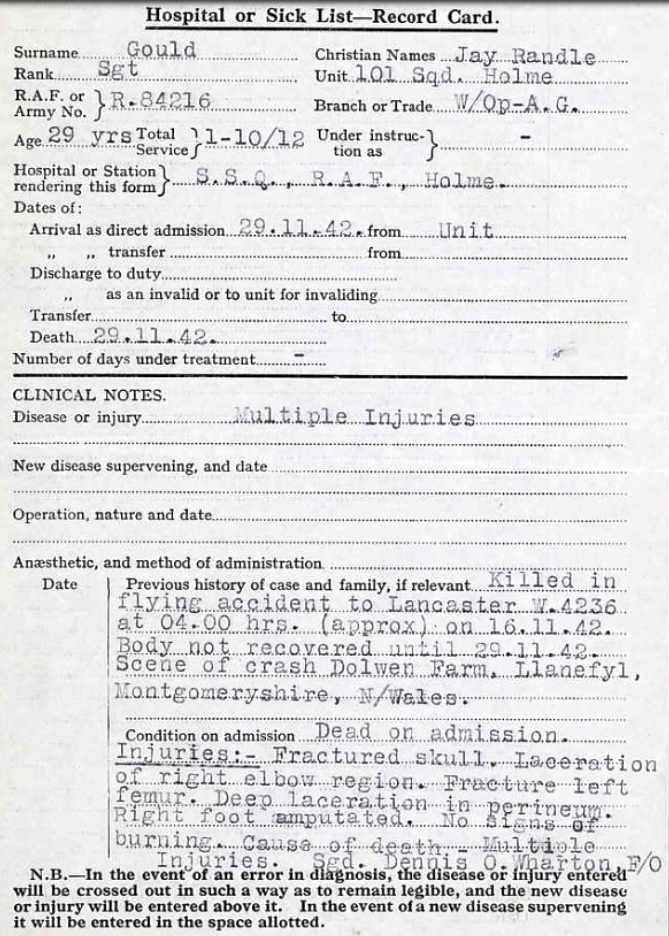 Hospital or Sick List—Record Card.
Surname Gould Christian Names Jay Randle
Rank Sgt Unit 101 Sqd. Holme
R.A.F. or Army No. } R.84216 Branch or Trade W/Op-A.G.
Age 29 yrs Total Service } 1-10/12 Under instruc-tion as } -
Hospital or Station rendering this form } S.S.Q., R.A.F., Holme.
Dates of:
Arrival as direct admission 29.11.42. from Unit
„ „ transfer from
Discharge to duty
„ as an invalid or to unit for invaliding
Transfer to
Death 29.11.42.
Number of days under treatment -
CLINICAL NOTES.
Disease or injury Multiple Injuries
New disease supervening, and date
Operation, nature and date
Anæsthetic, and method of administration
Date Previous history of case and family, if relevant Killed in
flying accident to Lancaster W.4236
at 04.00 hrs. (approx) on 16.11.42.
Body not recovered until 29.11.42.
Scene of crash Dolwen Farm, Llanefyl,
Montgomeryshire, N/Wales.
Condition on admission Dead on admission.
Injuries:- Fractured skull. Laceration
of right elbow region. Fracture left
femur. Deep laceration in perineum.
Right foot amputated. No signs of
burning. Cause of death - Multiple
Injuries. Sgd. Dennis O.Wharton F/O
N.B.—In the event of an error in diagnosis, the disease or injury entered
will be crossed out in such a way as to remain legible, and the new disease
or injury will be entered above it. In the event of a new disease supervening
it will be entered in the space allotted.